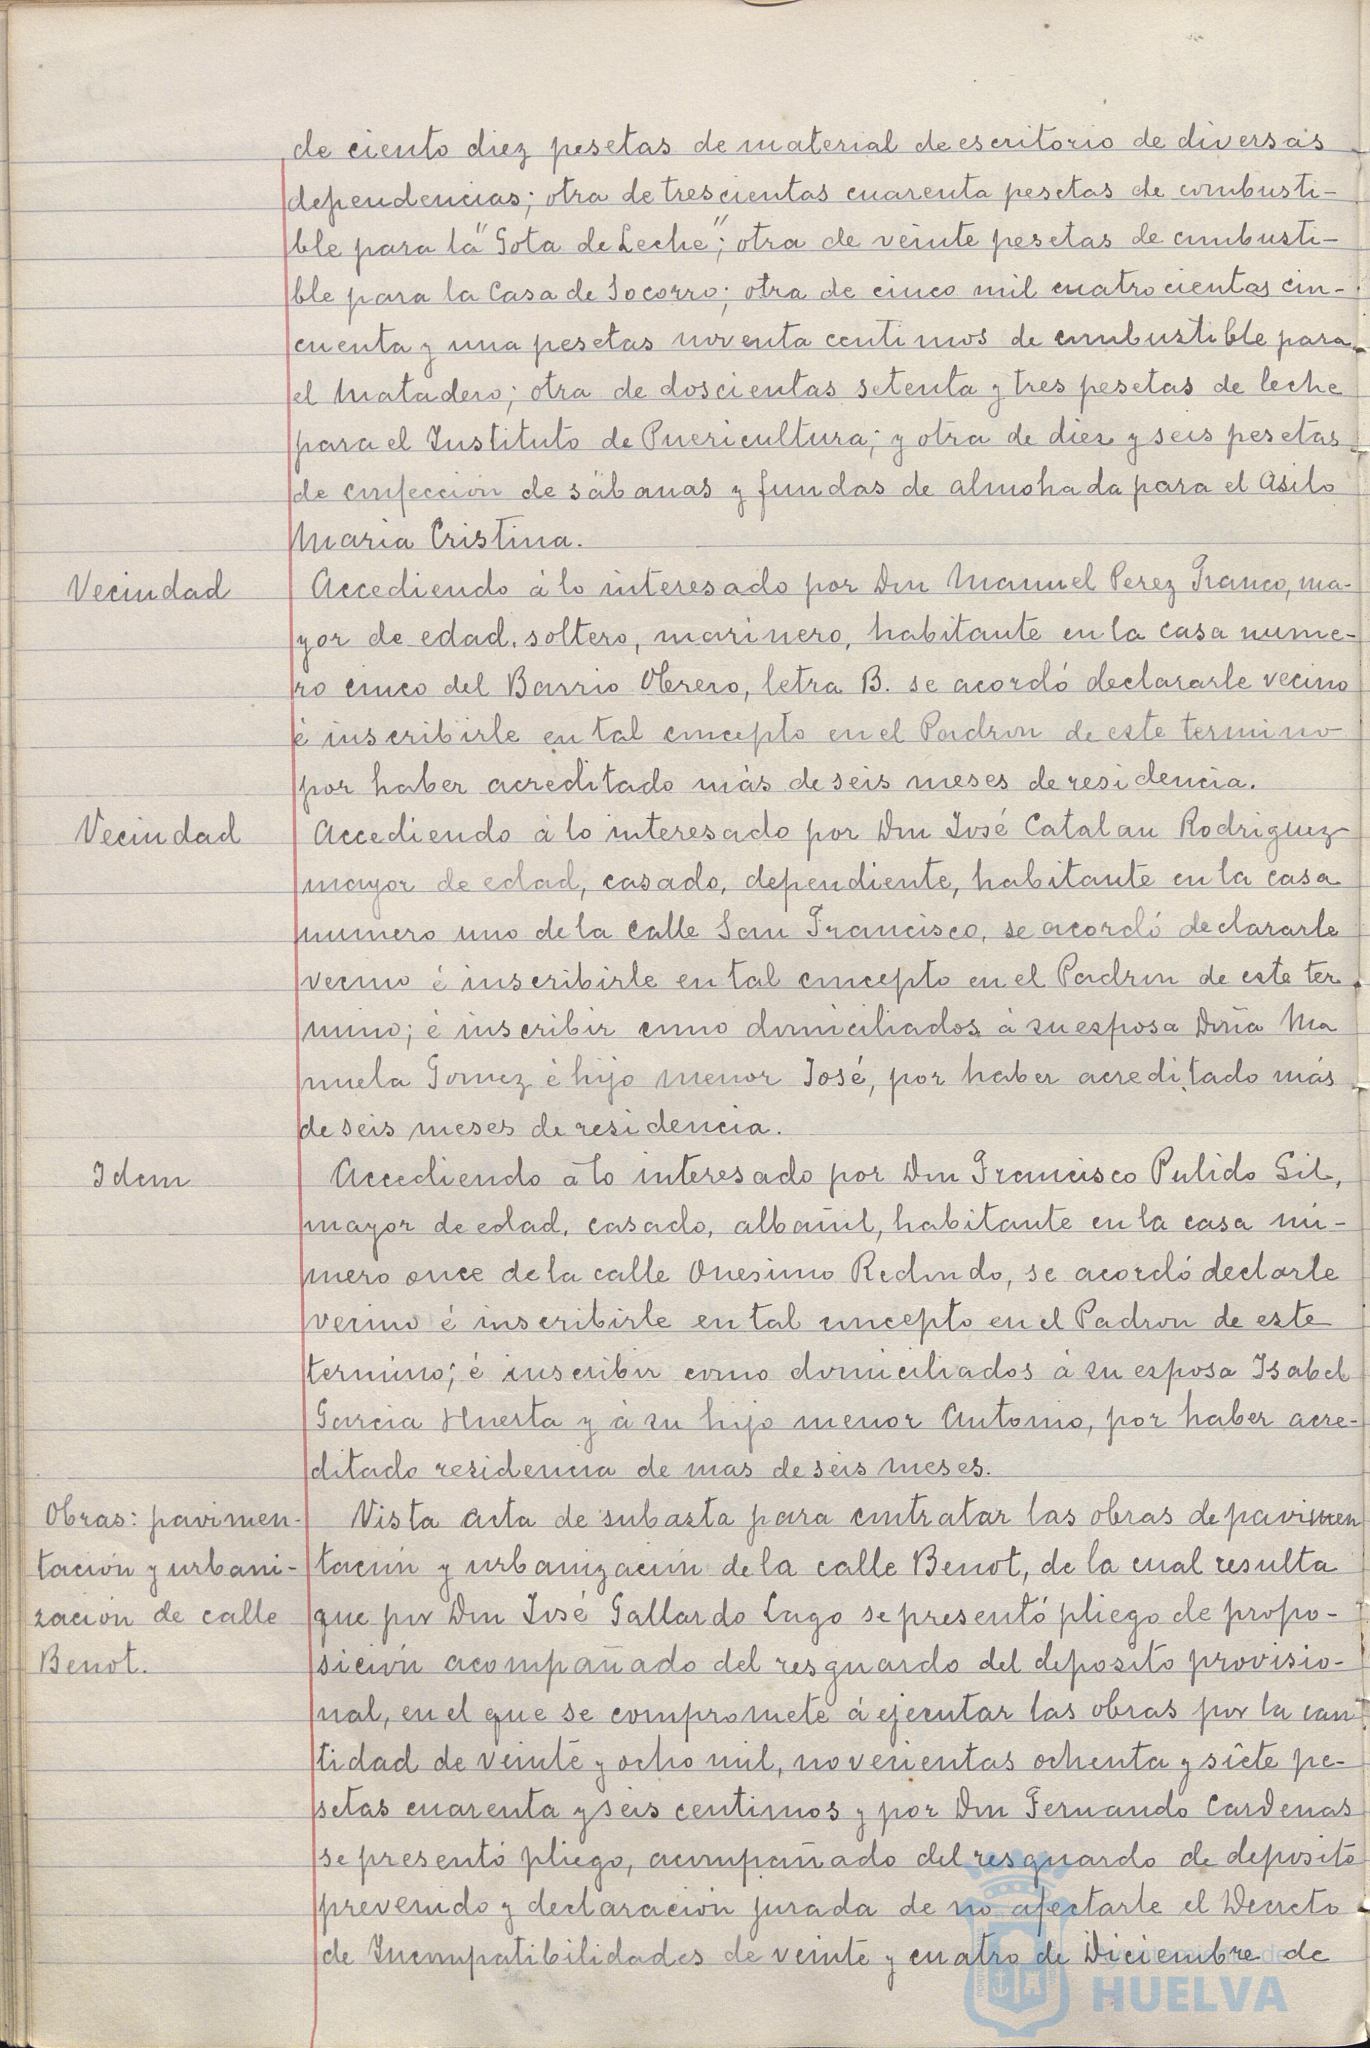 de ciento diez pesetas de material de escritorio de diversas
dependencias; otra de trescientas cuarenta pesetas de combusti-
ble para la "Gota de Leche"; otra de veinte pesetas de combusti-
ble para la Casa de Socorro; otra de cinco mil cuatrocientas cin-
cuenta y una pesetas noventa centimos de combustible para
el Matadero; otra de doscientas setenta y tres pesetas de leche
para el Instituto de Puericultura; y otra de diez y seis pesetas
de confección de sábanas y fundas de almohada para el Asilo
Maria Cristina.
Vecindad
Accediendo á lo interesado por Don Manuel Perez Franco, ma-
yor de edad, soltero, marinero, habitante en la casa nume-
ro cinco del Barrio Obrero, letra B. se acordó declararle vecino
é inscribirle en tal concepto en el Padron de este termino
por haber acreditado más de seis meses de residencia.
Vecindad
Accediendo á lo interesado por Don José Catalan Rodriguez
mayor de edad, casado, dependiente, habitante en la casa
numero uno de la calle San Francisco, se acordó declararle
vecino é inscribirle en tal concepto en el Padron de este ter
mino; é inscribir como domiciliados á su esposa Doña Ma
nuela Gomez é hijo menor José, por haber acreditado más
de seis meses de residencia.
Idem
Accediendo á lo interesado por Don Francisco Pulido Gil,
mayor de edad, casado, albañil, habitante en la casa nú-
mero once de la calle Onesimo Redondo, se acordó declarle
vecino é inscribirle en tal concepto en el Padron de este
termino; é inscribir como domiciliados á su esposa Isabel
Garcia Huerta y á su hijo menor Antonio, por haber acre-
ditado residencia de mas de seis meses.
Obras: pavimen-
tación y urbani-
zación de calle
Benot.
Vista acta de subasta para contratar las obras de pavimen
tación y urbanización de la calle Benot, de la cual resulta
que por Don José Gallardo Lago se presentó pliego de propo-
sición acompañado del resguardo del deposito provisio-
nal, en el que se compromete á ejecutar las obras por la can
tidad de veinte y ocho mil, novecientas ochenta y siete pe-
setas cuarenta y seis centimos y por Don Fernando Cardenas
se presentó pliego, acompañado del resguardo de deposito
prevenido y declaración jurada de no afectarle el Decreto
de Incompatibilidades de veinte y cuatro de Diciembre de
HUELVA